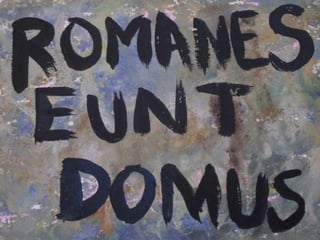 ROMANES
EUNT
DOMUS